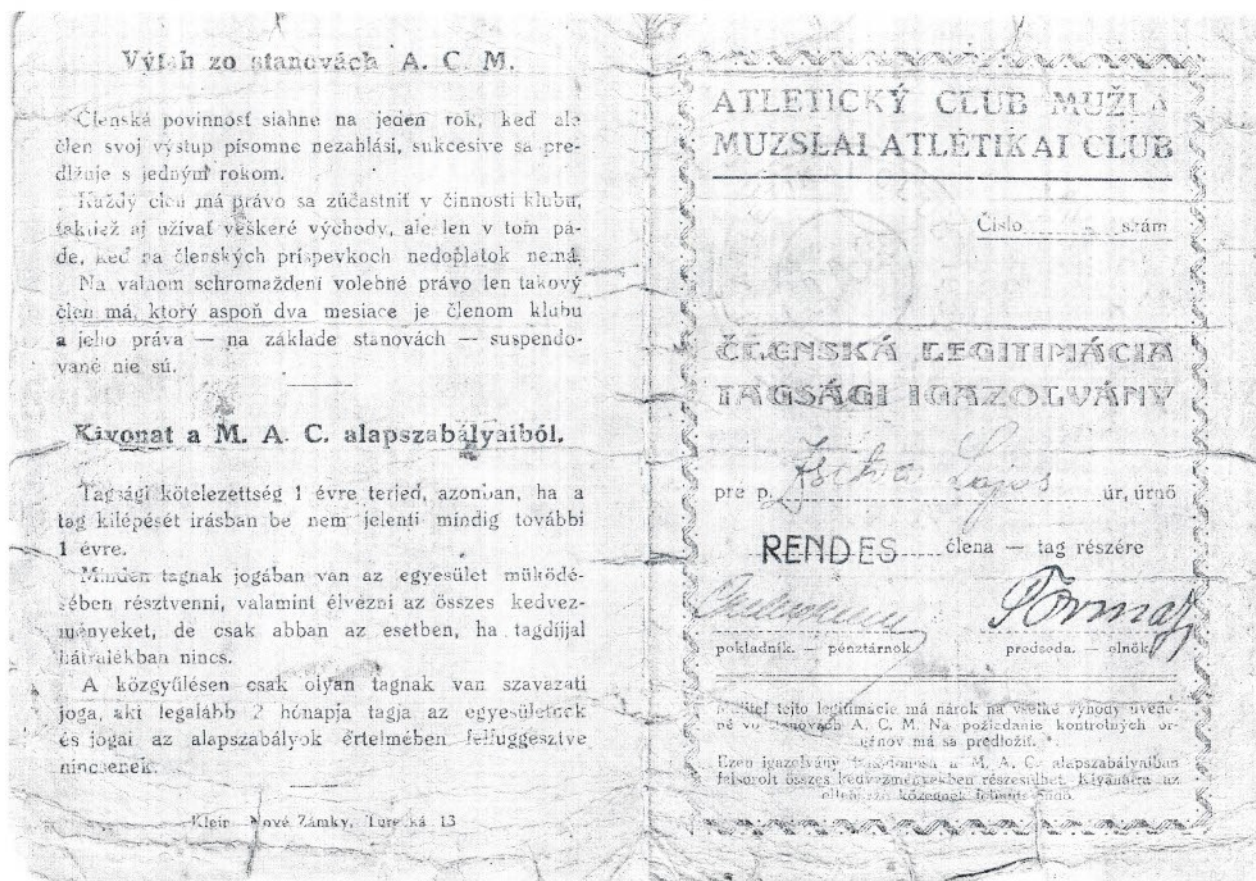 Výťah zo stanovách A. C. M.
Členská povinnosť siahne na jeden rok, keď ale
člen svoj výstup písomne nezahlási, sukcesive sa pre-
dlžuje s jedným rokom.
Každý člen má právo sa zúčastniť v činnosti klubu,
taktiež aj užívať veškeré východy, ale len v tom pá-
de, keď na členských príspevkoch nedoplatok nemá.
Na valnom schromaždení volebné právo len takový
člen má, ktorý aspoň dva mesiace je členom klubu
a jeho práva — na základe stanovách — suspendo-
vané nie sú.
Kivonat a M. A. C. alapszabályaiból.
Tagsági kötelezettség 1 évre terjed, azonban, ha a
tag kilépését irásban be nem jelenti mindig további
1 évre.
Minden tagnak jogában van az egyesület müködé-
sében résztvenni, valamint élvézni az összes kedvez-
ményeket, de csak abban az esetben, ha tagdíjjal
hátralékban nincs.
A közgyűlésen csak olyan tagnak van szavazati
joga, aki legalább 2 hónapja tagja az egyesületnek
és jogai az alapszabályok értelmében felfüggesztve
nincsenek.
Klein Nové Zámky, Turecká 13
ATLETICKÝ CLUB MUŽLA
MUZSLAI ATLÉTIKAI CLUB
Číslo szám
ČLENSKÁ LEGITIMÁCIA
TAGSÁGI IGAZOLVÁNY
pre p. Lajos úr, úrnő
RENDES člena — tag részére
pokladník. — pénztárnok
predseda. — elnök
Majiteľ tejto legitimácie má nárok na všetké výhody uvede-
né vo stanovách A. C. M. Na požiadanie kontrolných or-
gánov má sa predložiť.
Ezen igazolvány tulajdonosa a M. A. C. alapszabályaiban
felsorolt összes kedvezményekben részesülhet. Kívánatra az
közegnek